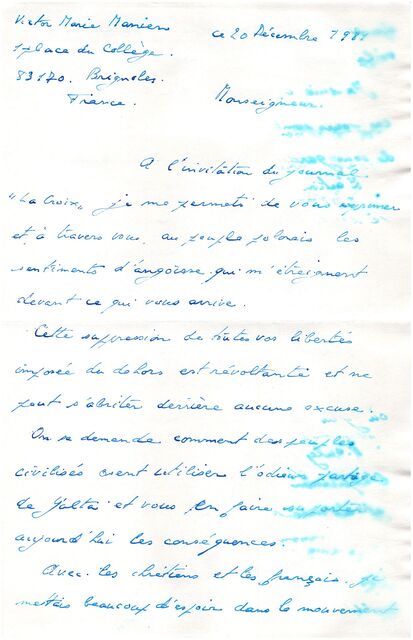 Victor Marie Maniers
ce 20 Décembre 1981
1 place du Collège.
83170. Brignoles.
France.
Monseigneur.
A l'invitation du journal
"La Croix" je me permets de vous exprimer
et, à travers vous, au peuple polonais les
sentiments d'angoisse qui m'étreignent
devant ce qui vous arrive.
Cette supression de toutes vos libertés
imposée du dehors est révoltante et ne
peut s'abriter derrière aucune excuse.
On se demande comment des peuples
civilisés osent utiliser l'odieux partage
de Yalta et vous en faire supporter
aujourd'hui les conséquences.
Avec les chrétiens et les français je
mettais beaucoup d'espoir dans le mouvement